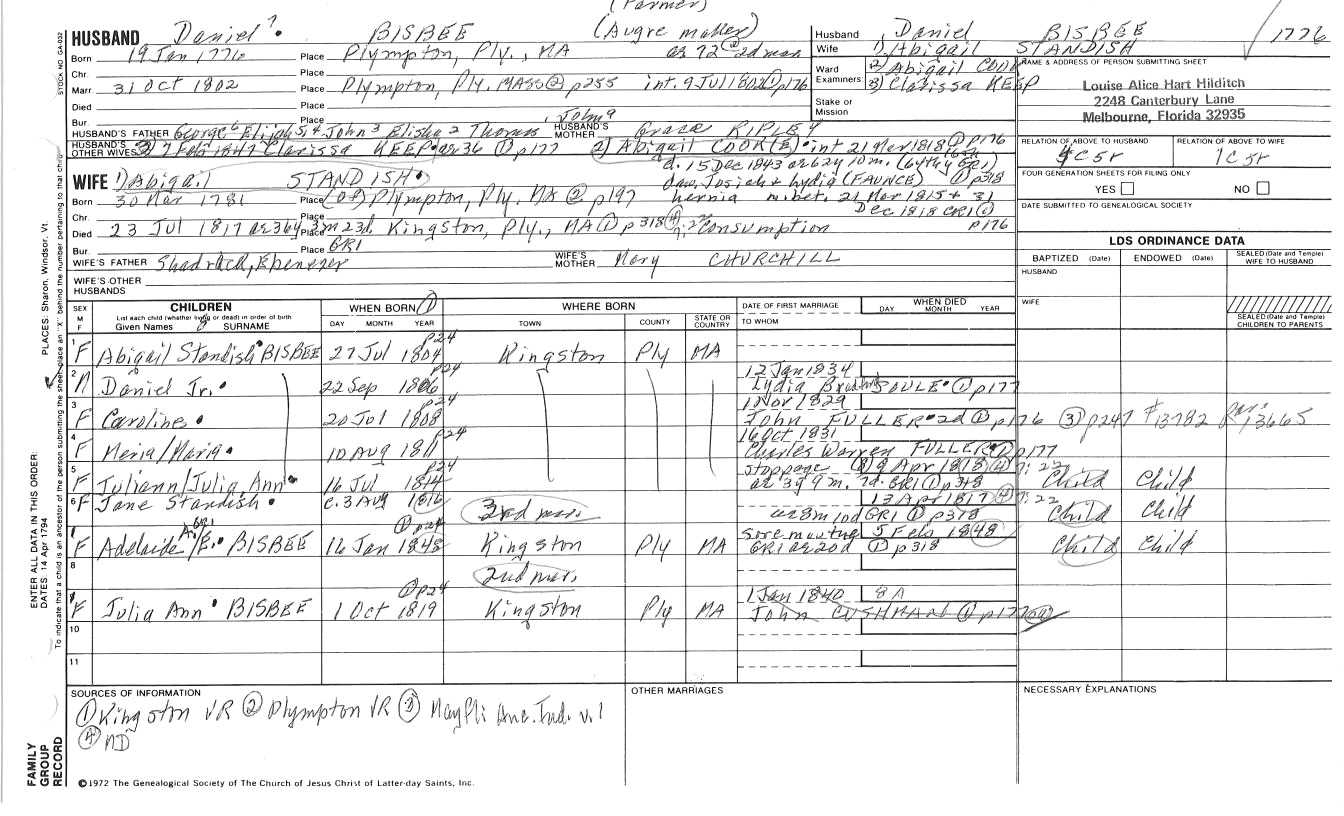 (Farmer)
HUSBAND Daniel? BISBEE (Augre maker)
Born 19 Jan 1776 Place Plympton, Ply., MA ae 72 @ 2d mar
Chr. Place
Marr 31 Oct 1802 Place Plympton, Ply. MASS ② p255 int. 9 Jul 1802 ① p176
Died Place
Bur Place
HUSBAND'S FATHER George 6 Elijah 5, 4 John 3 Elisha 2 Thomas 1, John 9 HUSBAND'S MOTHER Grace RIPLEY
HUSBAND'S OTHER WIVES 3) 7 Feb 1847 Clarissa KEEP • ae 36 ① p177 2) Abigail COOK(E) • int 21 Mar 1818 ① p176
d. 15 Dec 1843 ae 62y 10m. (
WIFE 1) Abigail STANDISH • dau. Josiah & Lydia (FAUNCE) ① p318
Born 30 Mar 1781 Place (of) Plympton, Ply. MA ② p197 21 Mar 1815 & 31
Chr. Place Dec 1818 GR1 ①
Died 23 Jul 1817 ae 36y 3m 23d Place Kingston, Ply., MA ① p318 ④ 7:22 Consumption p176
Bur. Place GR1
WIFE'S FATHER Shadrach, Ebenezer WIFE'S MOTHER Mary CHURCHILL
WIFE'S OTHER HUSBANDS
Husband Daniel BISBEE 1776
Wife 1) Abigail STANDISH
Ward Examiners: 2) Abigail COOK
3) Clarissa KEEP
Stake or Mission
NAME & ADDRESS OF PERSON SUBMITTING SHEET
Louise Alice Hart Hilditch
2248 Canterbury Lane
Melbourne, Florida 32935
RELATION OF ABOVE TO HUSBAND RELATION OF ABOVE TO WIFE
4C5r 1C5r
FOUR GENERATION SHEETS FOR FILING ONLY
YES NO
DATE SUBMITTED TO GENEALOGICAL SOCIETY
LDS ORDINANCE DATA
BAPTIZED (Date) ENDOWED (Date) SEALED (Date and Temple) WIFE TO HUSBAND
HUSBAND
WIFE
SEALED (Date and Temple) CHILDREN TO PARENTS
SEX M F CHILDREN WHEN BORN ① WHERE BORN DATE OF FIRST MARRIAGE WHEN DIED
List each child (whether living or dead) in order of birth
Given Names SURNAME DAY MONTH YEAR TOWN COUNTY STATE OR COUNTRY TO WHOM DAY MONTH YEAR
1 F Abigail Standish • BISBEE 27 Jul 1804 p24 Kingston Ply MA
2 M Daniel Jr. • 22 Sep 1806 p24 12 Jan 1834 Lydia SOULE • ① p177
3 F Caroline • 20 Jul 1808 p24 1 Nov 1829 John FULLER • 2d ① p176 ③ p247 #13782 13665
4 F Meria/Maria • 10 Aug 1811 p24 16 Oct 1831 Charles Warren FULLER ① p177
5 F Juliann/Julia Ann • 16 Jul 1814 p24 stoppage 9 Apr 1818 ④ 7:22 ae 3y 9m. 7d. GR1 ① p318 Child Child
6 F Jane Standish • c. 3 Aug 1816 3rd mar. 13 Apr 1817 ④ 7:22 ae 8m 10d GR1 ① p318 Child Child
F Adelaide A./E. GR1 • BISBEE 16 Jan 1848 ① p24 Kingston Ply MA Sore mouth 5 Feb 1848 GR1 ae 20d ① p318 Child Child
8 2nd mar.
F Julia Ann • BISBEE 1 Oct 1819 ① p24 Kingston Ply MA 1 Jan 1840 8A John CUSHMAN ① p177
10
11
SOURCES OF INFORMATION OTHER MARRIAGES NECESSARY EXPLANATIONS
① Kingston VR ② Plympton VR ③ MayFli Anc. Ind. v. 1
④ MD
©1972 The Genealogical Society of The Church of Jesus Christ of Latter-day Saints, Inc.
STOCK NO GA-032
PLACES: Sharon, Windsor, Vt.
ENTER ALL DATA IN THIS ORDER:
DATES: 14 Apr 1794
To indicate that a child is an ancestor of the person submitting the sheet, place an "X" behind the number pertaining to that child.
FAMILY GROUP RECORD